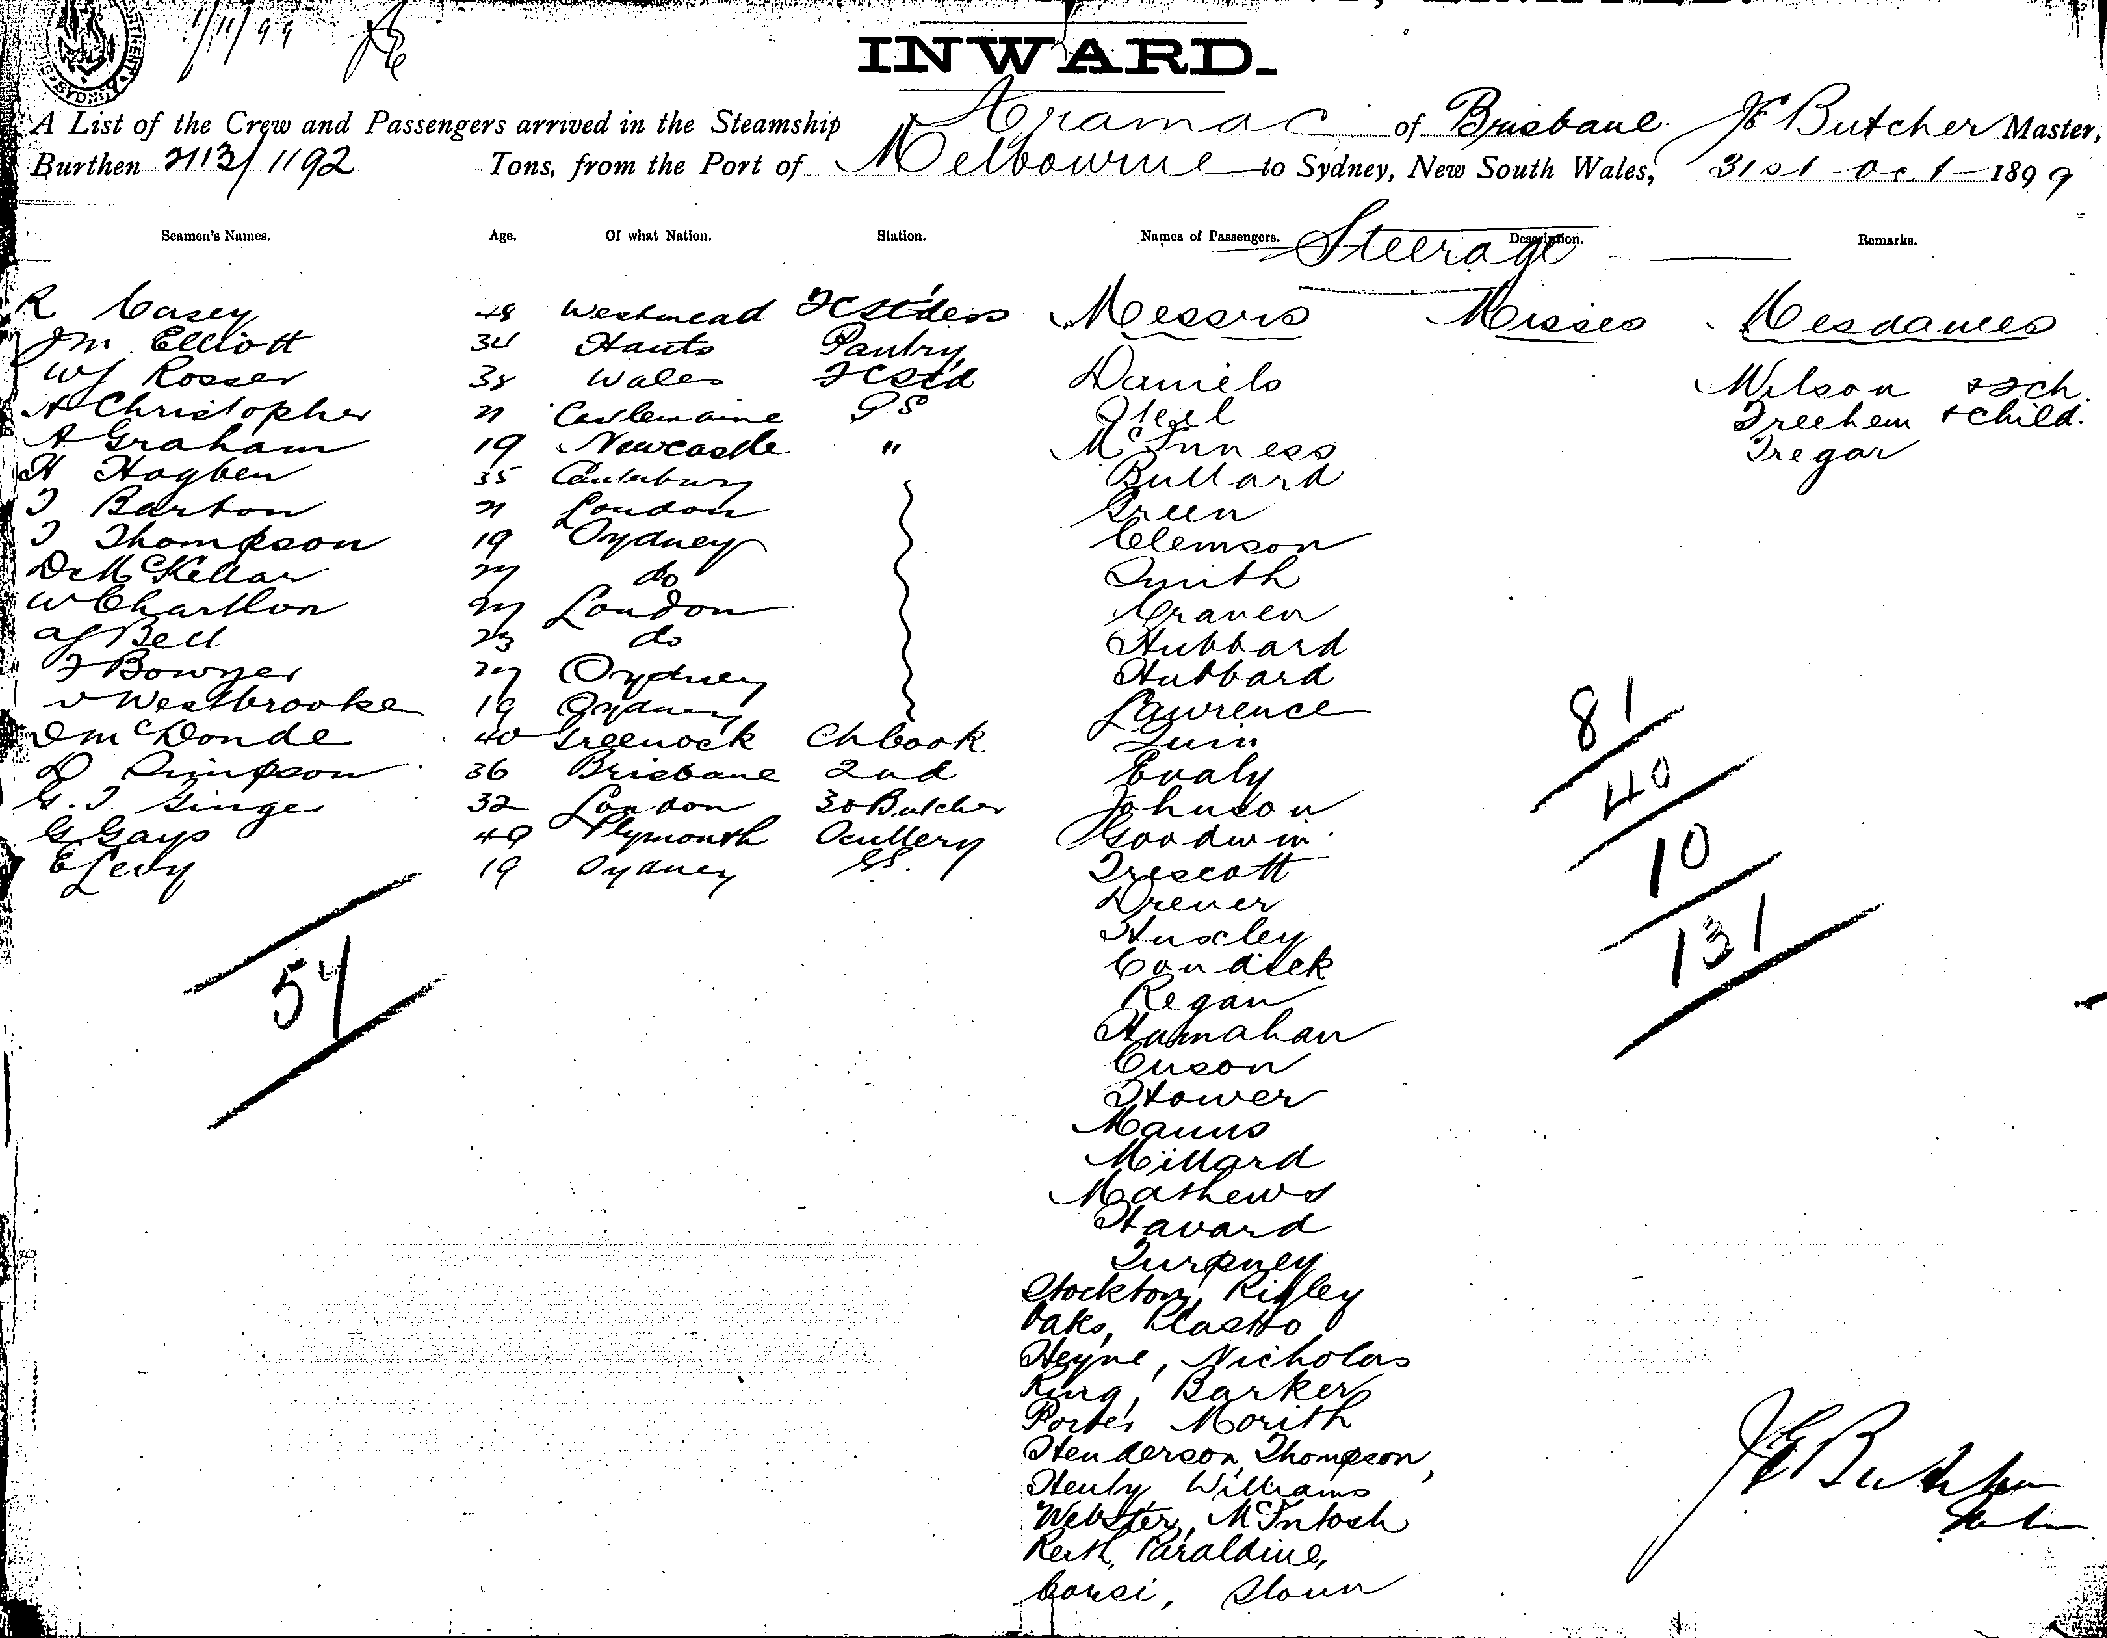 1/11/99
INWARD.
A List of the Crew and Passengers arrived in the Steamship Aramac of Brisbane JE Butcher Master,
Burthen 2113/1192 Tons, from the Port of Melbourne to Sydney, New South Wales, 31st Oct 1899
Seamen's Names. Age. Of what Nation. Station. Names of Passengers. Description. Remarks.
Steerage
R Casey 48 Westmead FCSt'ders Messrs Misses Mesdames
JM Elliott 34 Hants Pantry
WJ Rosser 38 Wales FCStd Daniels Wilson & 2ch.
A Christopher 21 Castlemaine GS Steel Treehem & child.
A Graham 19 Newcastle " McInness Tregar
H Hogben 35 Canterbury Bullard
T Barton 21 London Green
T Thompson 19 Sydney Clemson
D McKellar 27 do Smith
W Charlton 27 London Craven
AJ Bell 23 do Hubbard
F Bowyer 27 Sydney Hubbard
V Westbrooke 19 Sydney Lawrence
D McDonde 40 Greenock Ch Cook Quin
D Simpson 36 Brisbane 2nd Evaly
G.T Ginger 32 London 3d Butcher Johnson
G Gays 49 Plymouth Scullery Goodwin
E Levy 19 Sydney GS. Trescott
Drever
Huxley
Condick
Regan
Hannahan
Cuson
Stower
Manns
Millard
Mathews
Havard
Turpney
Stockton, Rigley
Oaks, Plasto
Heyne, Nicholas
King, Barker
Porter Morith
Henderson, Thompson,
Henly Williams
Webster, McIntosh
Keith, Paraldine,
Corsi, Sloan
54
81
40
10
131
JE Butcher